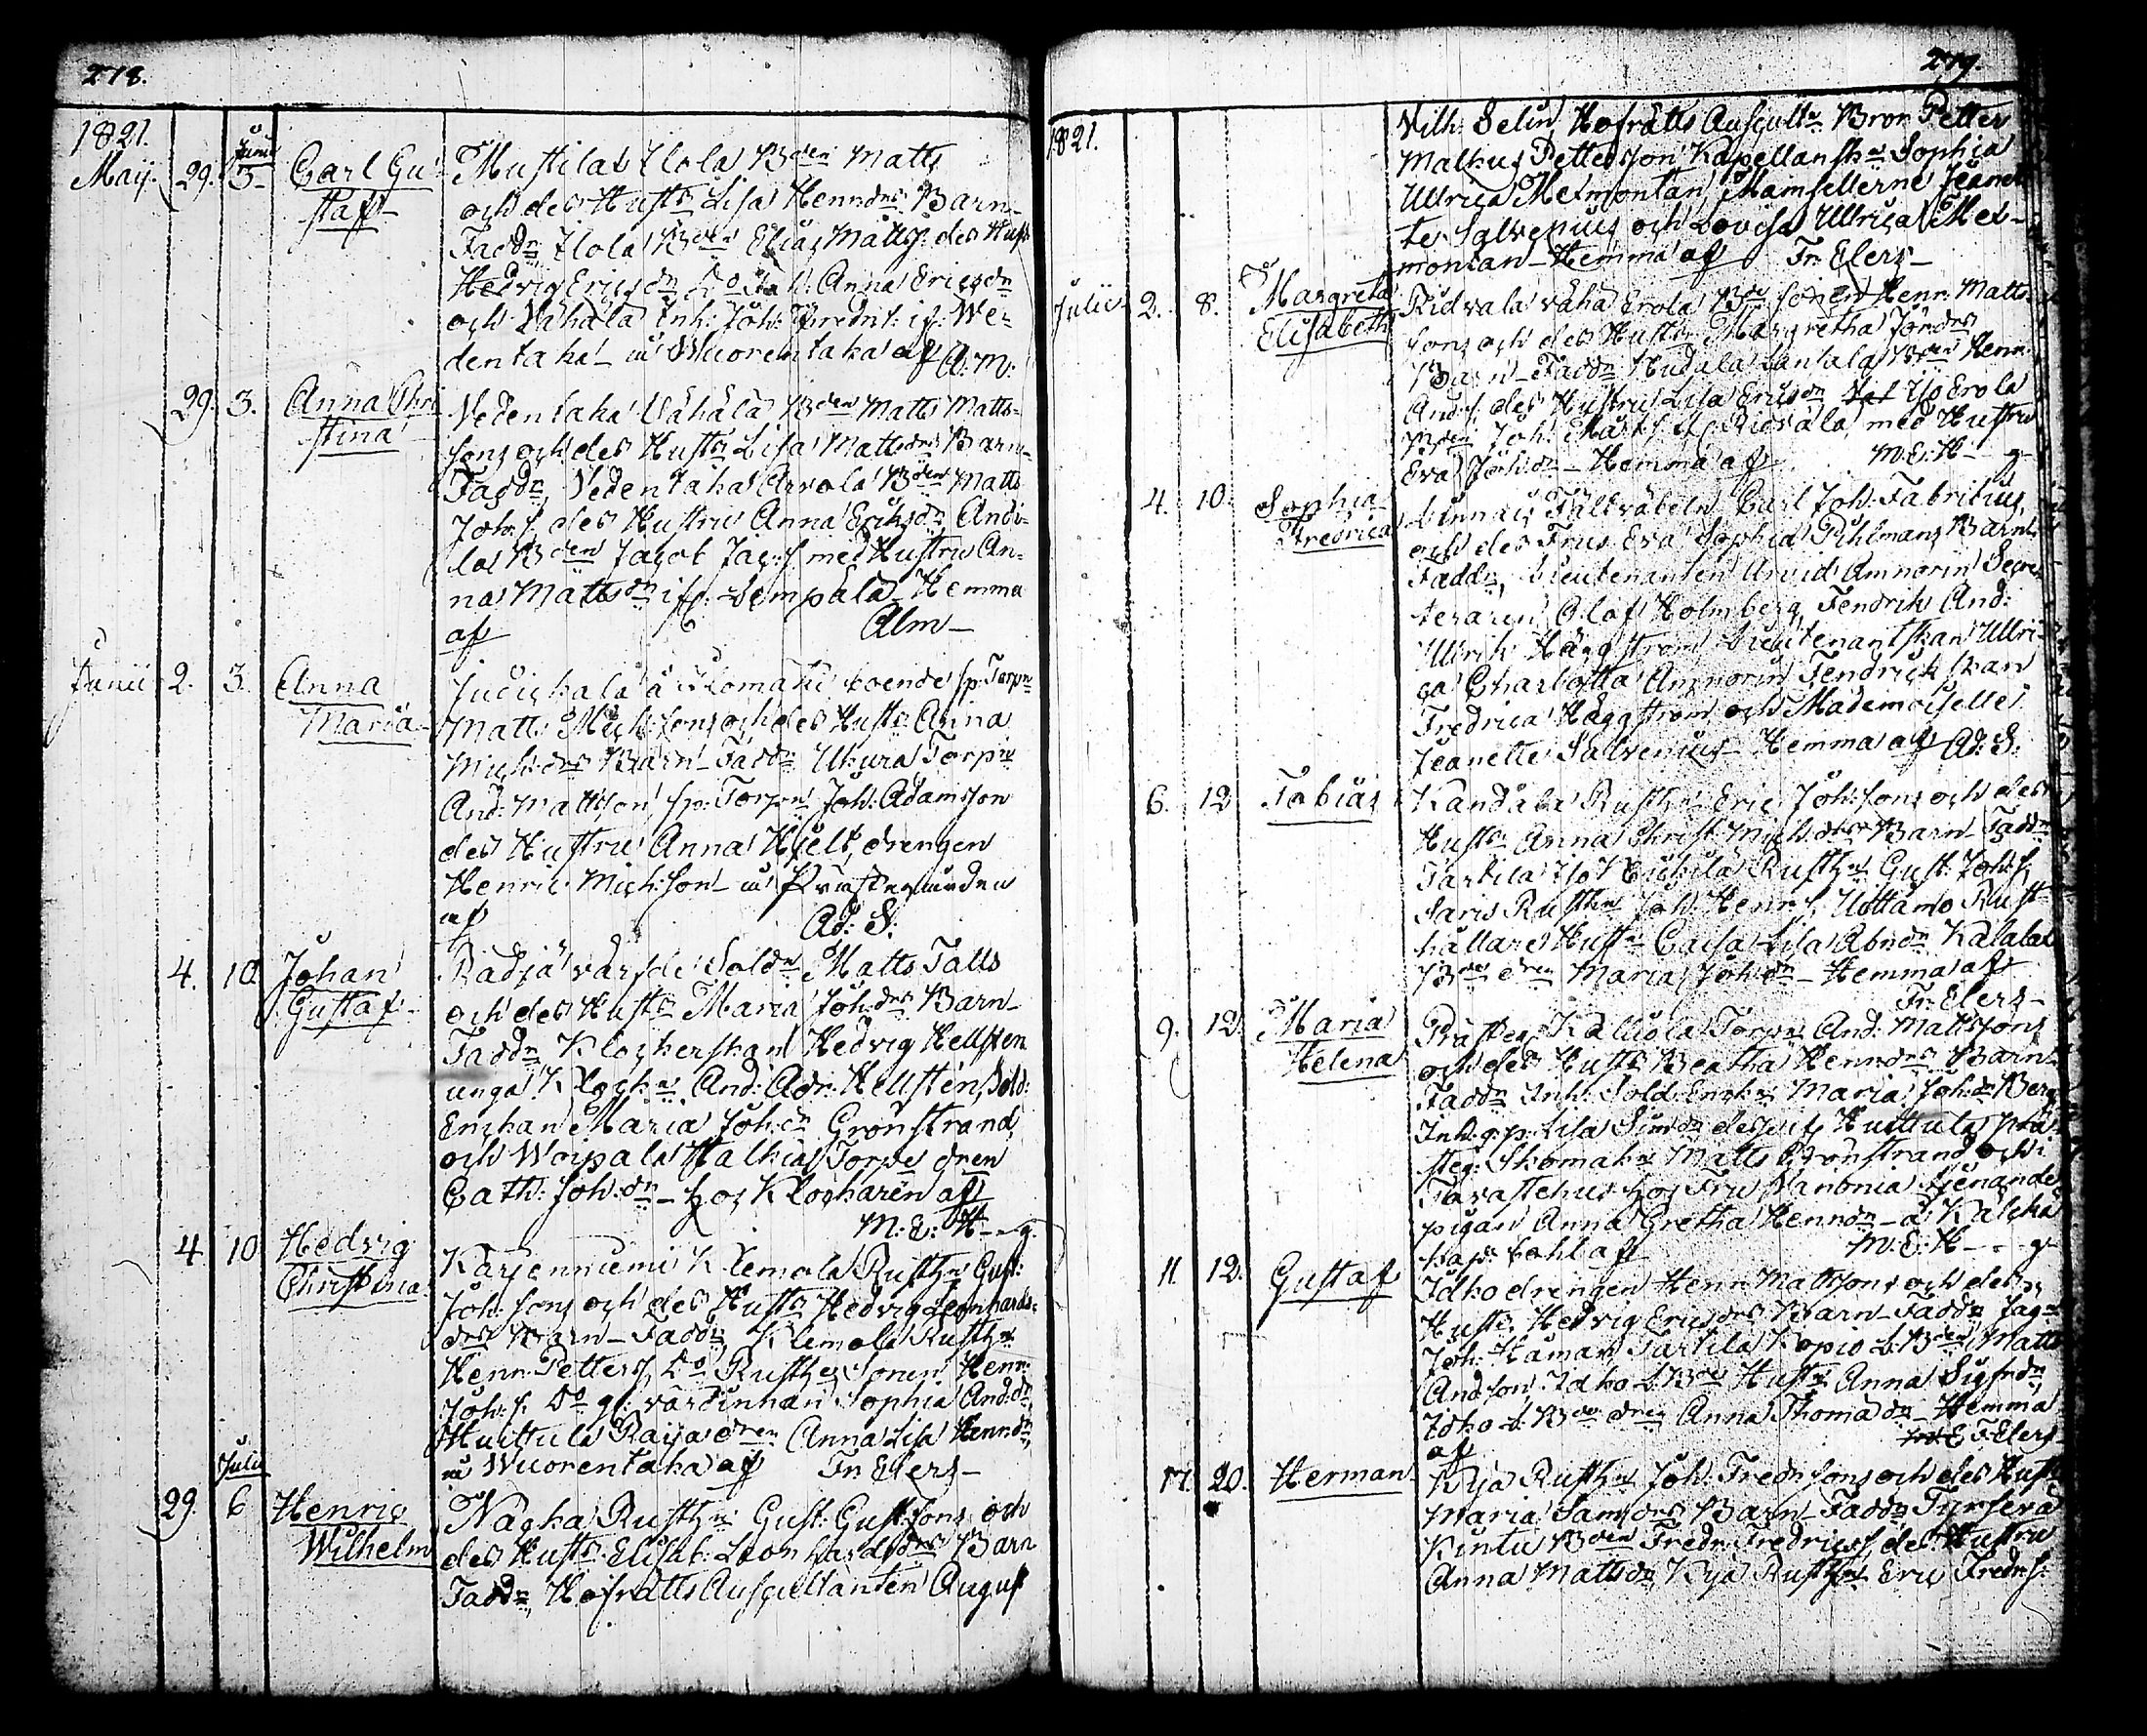 278.
1821.
Maij. 29. Junii 3. Carl Gustaf
Mustila Ilola Bden Matts
och des Hustr Lisa Henrdrs Barn
Faddr Ilola Bden Elias Matts: des Hust
Hedvig Ericsdr Do Anna Ericsdr
och Wähälä Inh: Joh:
dentaka i Wuorentaka af A: M:
29. 3. Anna Christina
Vedentaka Wähälä Bden Matts Matts-
sons och des Hustr Lisa Mattsdrs Barn
Faddr, Vedentaka Arvola Bden Matts
Joh: s. des Hustru Anna Eriksdr,
la Bden Jacob Jac: s. med Hustru An-
na Mattsdr if: Lempälä Hemma
af Alm
Junii 2. 3. Anna Maria
boende sp: Torpr
Matts Mich: sons och des Hustr Anna
Mich: drs Barn Faddr Uhura Torpr
And: Mattsson, sp: Torpn Joh: Adamsson
des Hustru Anna Hjelt, drengen
Henric Mich: son i Prästegården
af Ad: S:
4. 10. Johan Gustaf
Soldn Matts Talls
och des Hustr Maria Joh: drs Barn
Faddr Klockerskan Hedvig Hellsten
unga Klockn And: Adr: Hellsten, Sold:
Enckan Maria Joh: dr Grönstrand
och Woipala Halkia Torpe dren
Cath: Joh: dr hos Klockaren af
M: E: H--g
4. 10. Hedvig Christina
Karjenniemi Klemola Rusthn Gust:
Joh: sons och des Hustr Hedvig Leonhards-
drs Barn Faddr, Klemola Rusthn
Henr: Petters, Do Rusthr Sonen Henr:
Joh: s. Do gl: värdinnan Sophia And: dr
Huittula Raija dren Anna Lisa Henrdr,
i Wuorentaka af Fr: Elers
29. Julii 6 Henric Wilhelm
Nacka Rusthr Gust: Gustsons och
des Hustr: Elisab: Leonhardsdrs Barn
Faddr, Hofrätts Auscultanten August
279.
1821.
Vilh: Selin, Hofrätts Auscultn Bror Petter
Malhus Pettersson Kapellanskn Sophia
Ullrica Melmontan, Mamsellerne Jeanet-
te Salvenius och Lovisa Ullrica Mel-
montan Hemma af Fr: Elers
Julii 2. 8. Margreta Elisabeth
Ridvala väha Erola Bde sonen Henr: Matts-
sons och des Hustr Margretha Jörandrs
Barn Faddr Hudala Lantala Bden Henr:
And: s. des Hustru Lisa Ericsdr Iso Erola
Bden Joh: if Ridvala med Hustru
Eva Joh: dr Hemma af M: E: H--g
4. 10. Sophia Fredrica
Fältväbeln Carl Joh: Fabritius,
och des Frus Eva Sophia Pihlmans Barn
Faddr, Lieutenanten Arvid Amnorin Secre-
teraren Olof Holmberg, Fendrik And:
Ullrik Häggström, Lieutenantskan Ullri-
ca Charlotta Amnorin Fendrickskan
Fredrica Häggström och Mademoiselle
Jeanette Salvenius Hemma af Ad: S:
6. 12 Tobias
Kandala Rusthn Eric Joh: sons och des
Hustr Anna Christ: Mich: drs Barn Faddr
Tarkila Iso Rusthn Gust: Joh: s,
Saris Rusthn Joh: Henr: s, Uottamo Rust-
hållare Hustr Caisa Lisa Abrdr Kalala
Bde dren Maria Joh: dr Hemma af
Fr: Elers
9. 12. Maria Helena
Prästeg: Kalliola Torpn And: Mattsons
och des Hustr Beatha Henrdrs Barn
Faddr Inh: Sold: Enckn Maria Joh: dr Berg
Inh: Lisa Simdr Huittula
steg: Skomakn Matts Grönstrand och i
Tavastehus hos Fru tjenande
pigan Anna Gretha Henrdr
af M: E: H--g
11. 12. Gustaf
Idkodrengen Henr: Mattsons och des
Hustr Hedvig Ericsdrs Barn Faddr
Joh: Tarkila Kopio Bden Matts
Andson Idko Bde Hustr Anna Sigfrdr,
Idko Bde dren Anna Thomadr Hemma
af F: Elers
17. 20. Herman
Kyjä Rusthn Joh: Fredr: sons och des Hustr
Maria Samdrs Barn Faddr
Bden Fredr: Fredrics: des Hustru
Anna Mattsdr, Kyjä Rusthn Eric Fredr: s: